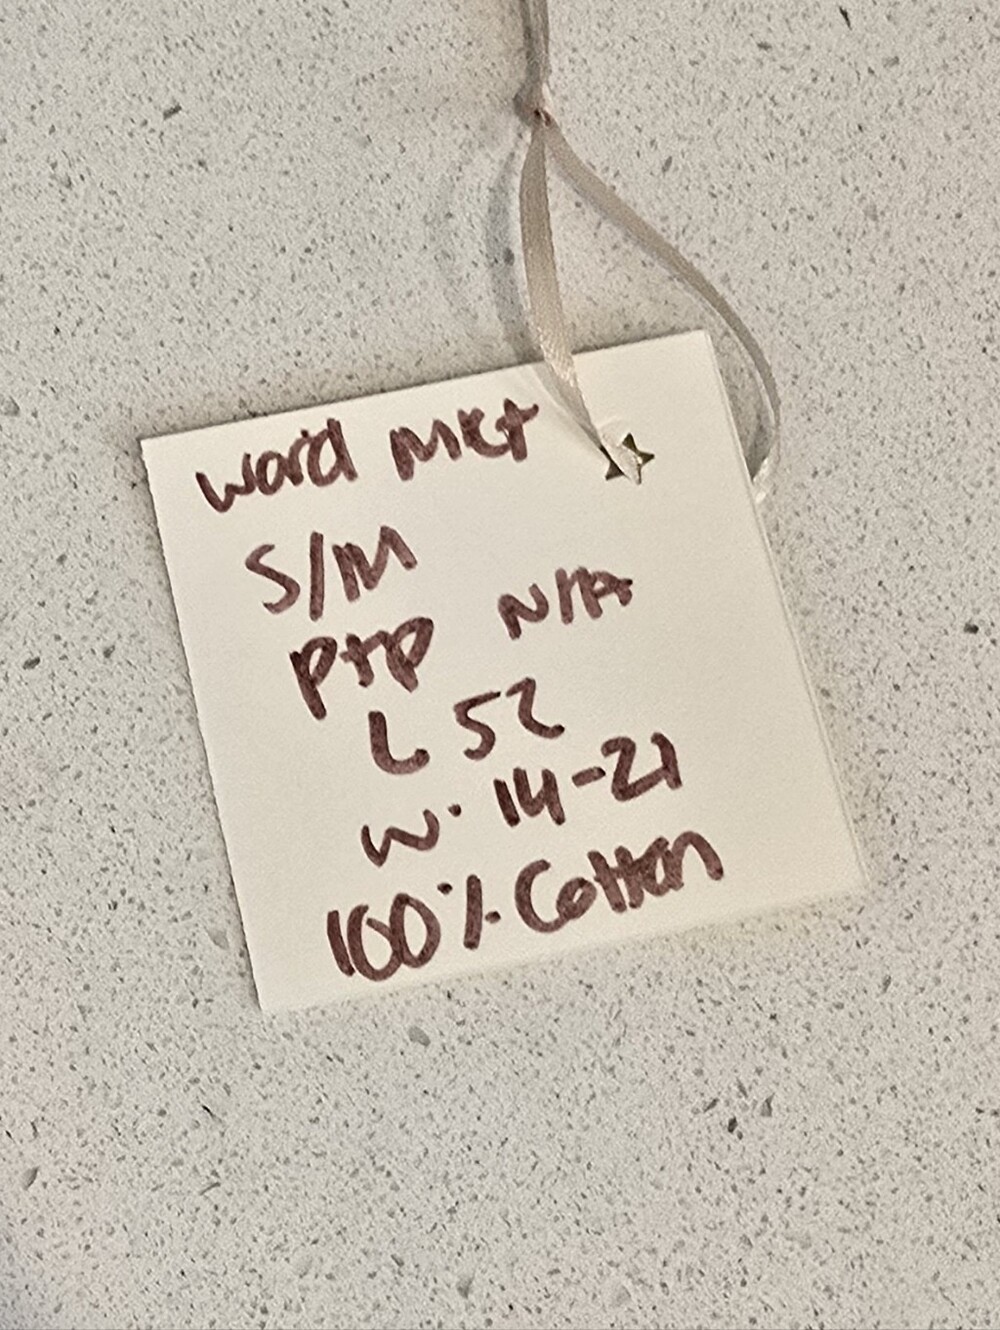 World Mkt
S/M
PTP N/A
L 52
W. 14-21
100% Cotton